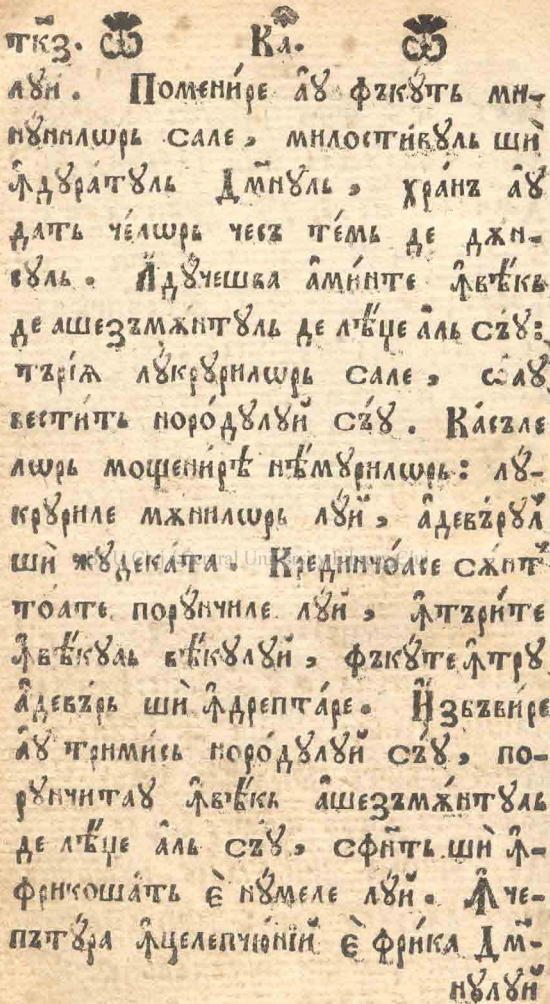 тк҃з. Ѿ Ка҃. Ѿ
лꙋй. Поменíре а҆ꙋ фъкꙋ́ть ми-
нꙋ́нилѡрь сале, милостíвꙋль шѝ
ꙟ҆дꙋра́тꙋль Дм҃нꙋль, хра́нъ а҆ꙋ
дать че́лѡрь чесъ те́мь де дѫн-
сꙋль. А҆дꙋ́чешва а҆ми́нте ꙟ҆вѣ́кь
де ашезъмѫ́нтꙋль де лѣ́џе а҆ль съ́ꙋ:
търі́ѧ лꙋ́крꙋрилѡрь сале, ѡ҆аꙋ
вести́ть норо́дꙋлꙋй съ́ꙋ. Ка́съле
лѡрь мощени́рѣ нѣ́мꙋрилѡрь: лꙋ́-
крꙋриле мѫ́нилѡрь лꙋй, а҆девъ́рꙋл
шѝ жꙋдека́та. Крединчо́асе сѫнт
тоате порꙋ́нчиле лꙋй, ꙟ҆търи́те
ꙟ҆вѣ́кꙋль вѣ́кꙋлꙋй, фъкꙋ́те ꙟ҆трꙋ
а҆девъ́рь шѝ ꙟ҆дрепта́ре. И҆збъви́ре
а҆ꙋ тримись норо́дꙋлꙋй съ́ꙋ, по-
рꙋнчитаꙋ ꙟ҆вѣ́кь а҆шезъмѫ́нтꙋль
де лѣ́џе а҆ль съ́ꙋ, сфи҃ть шѝ ꙟ҆-
фрикоша́ть є҆̀ нꙋ́меле лꙋй. Ꙟ҆че-
пътꙋ́ра ꙟ҆целепчю́нїй є҆̀ фри́ка Дм҃-
нꙋлꙋй